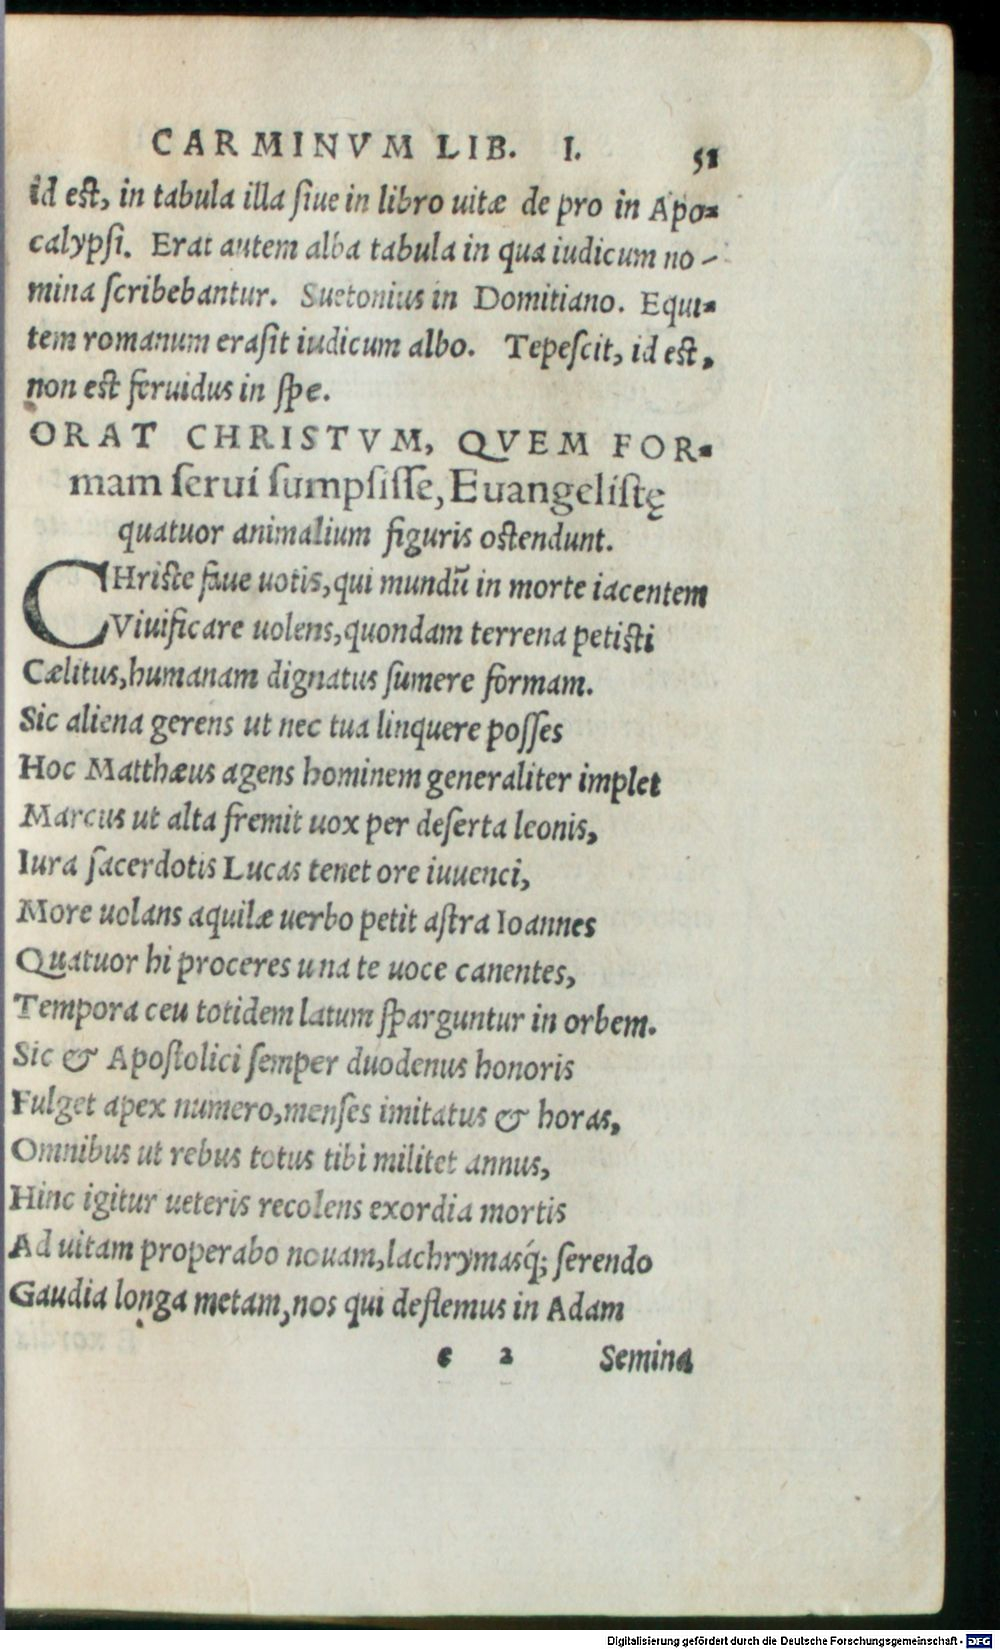 CARMINVM LIB. I. 51
id est, in tabula illa siue in libro uitæ de pro in Apo-
calypsi. Erat autem alba tabula in qua iudicum no-
mina scribebantur. Suetonius in Domitiano. Equi-
tem romanum erasit iudicum albo. Tepescit, id est,
non est feruidus in spe.
ORAT CHRISTVM, QVEM FOR-
mam serui sumpsisse, Euangelistę
quatuor animalium figuris ostendunt.
CHriste faue uotis, qui mundũ in morte iacentem
Viuificare uolens, quondam terrena petisti
Cælitus, humanam dignatus sumere formam.
Sic aliena gerens ut nec tua linquere posses
Hoc Matthæus agens hominem generaliter implet
Marcus ut alta fremit uox per deserta leonis,
Iura sacerdotis Lucas tenet ore iuuenci,
More uolans aquilæ uerbo petit astra Ioannes
Quatuor hi proceres una te uoce canentes,
Tempora ceu totidem latum sparguntur in orbem.
Sic & Apostolici semper duodenus honoris
Fulget apex numero, menses imitatus & horas,
Omnibus ut rebus totus tibi militet annus,
Hinc igitur ueteris recolens exordia mortis
Ad uitam properabo nouam, lachrymasq́; serendo
Gaudia longa metam, nos qui deflemus in Adam
e 2 Semina
Digitalisierung gefördert durch die Deutsche Forschungsgemeinschaft - DFG